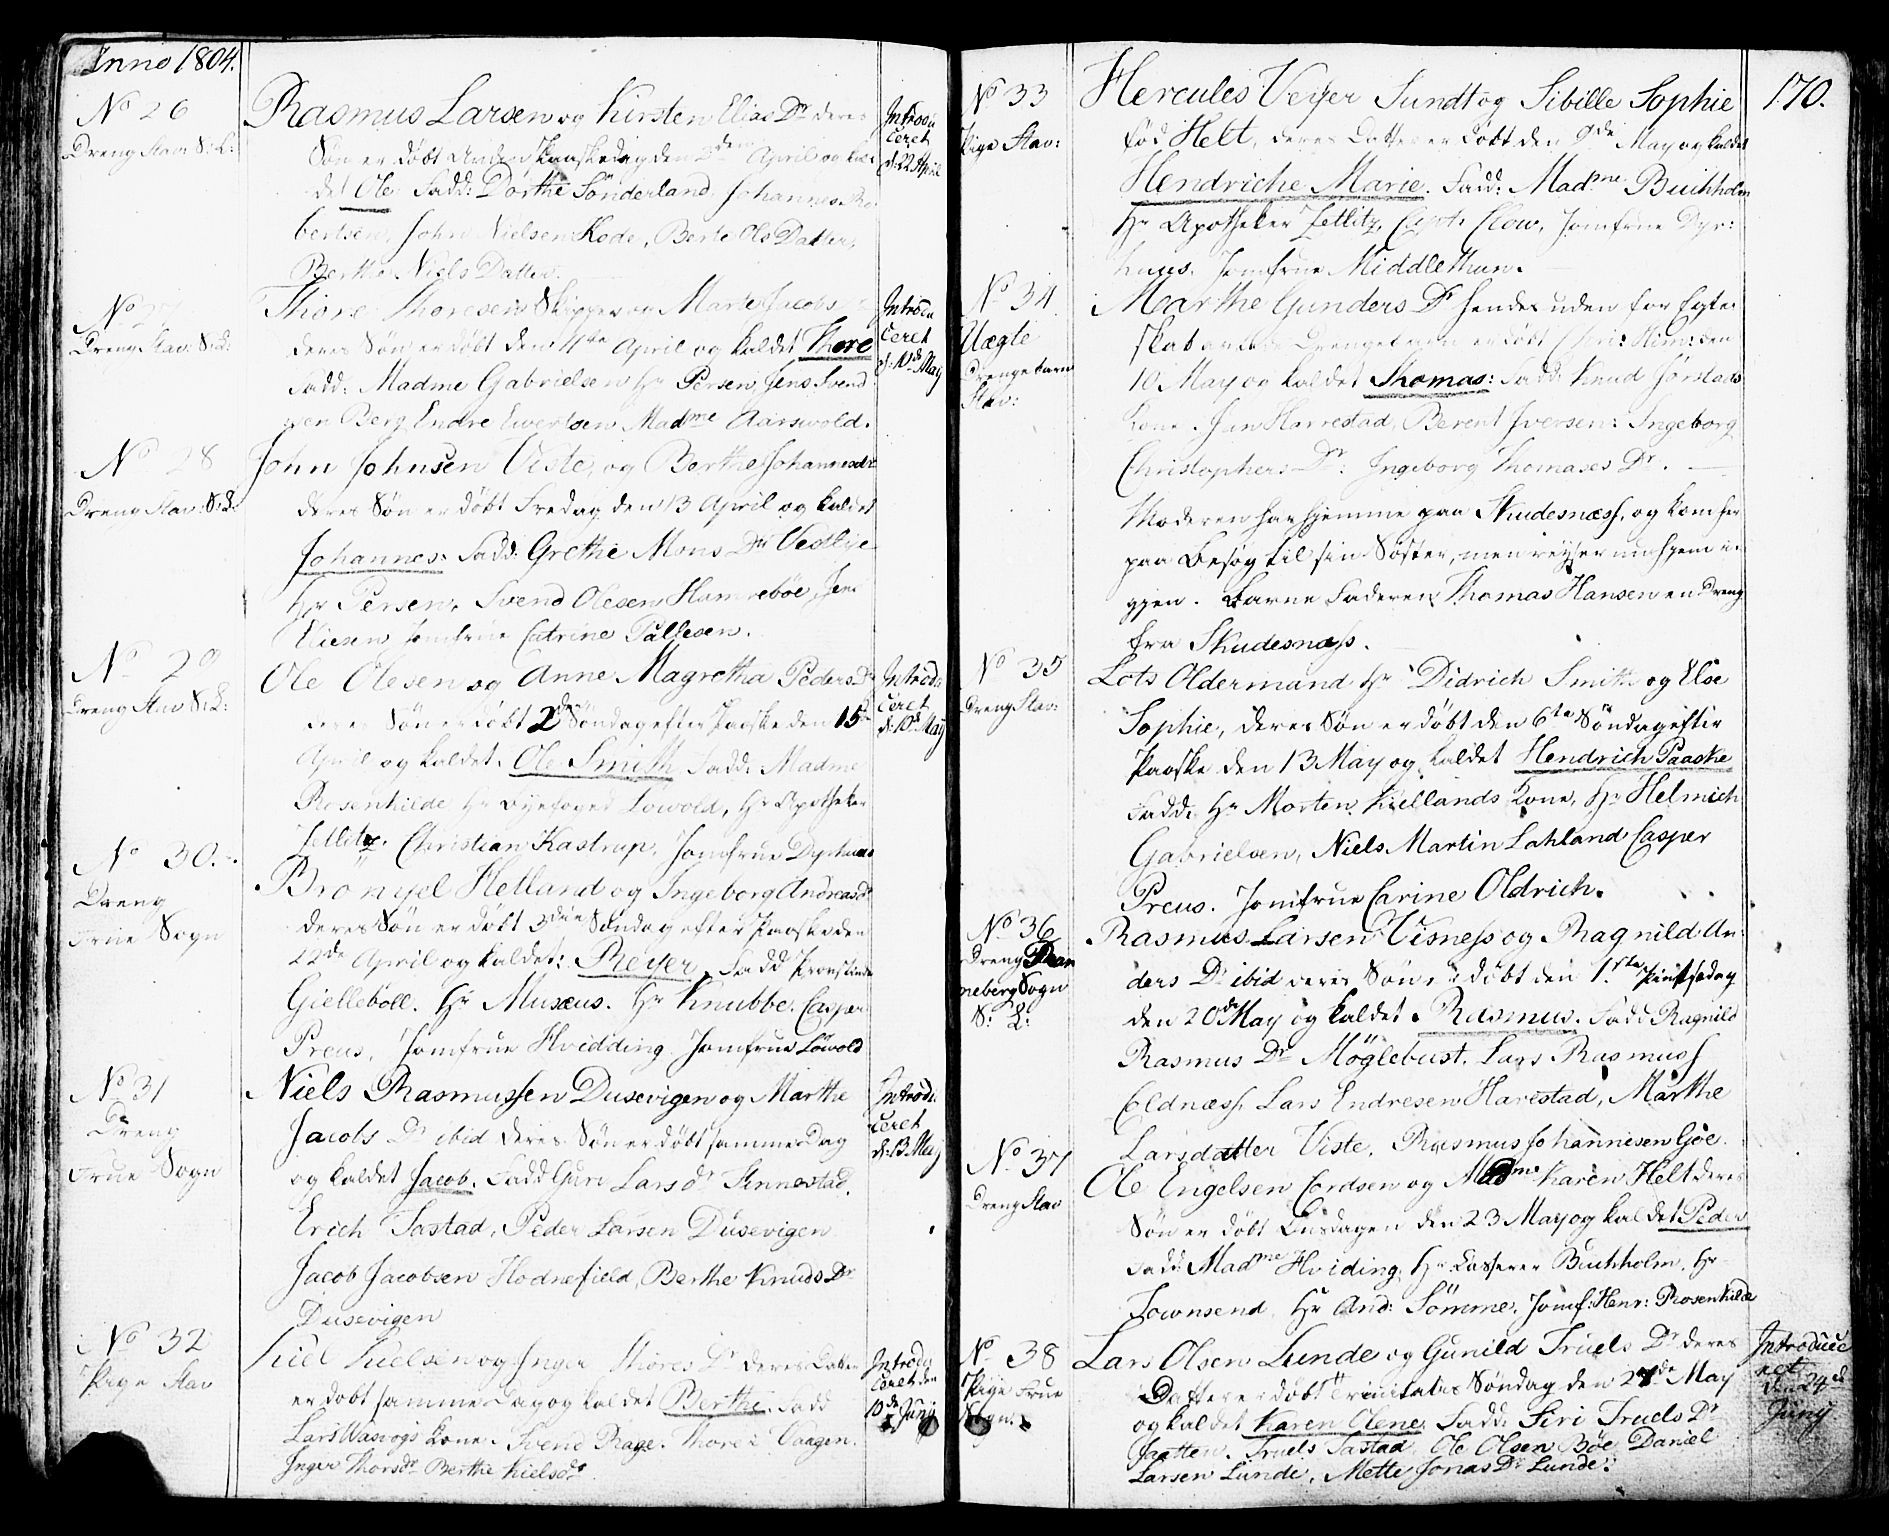 Anno 1804.
No 26
Dreng Stav S: L:
Rasmus Larsen og Kirsten Elias Dr deres
Søn er døbt Anden Paaskedag den 2den April og kal
det Ole Fadd: Dorthe Sönderland Johannes Ro
bertsen, John Nielsen Kode, Berte Ols Datter,
Berthe Niels Datter.
Introdu
ceret
d: 22 April
No 27
Dreng Stav: S: L:
Thore Thoresen Skipper og Marte Jacobs
deres Søn er døbt den 4de April og kaldet Thore
Fadd: Madme Gabrielsen Hr Persen, Jens Svend
sen Berg Endre Evertsen Madme Aarsvold.
Introdu
ceret
d: 10de May
No 28
Dreng Stav: S: L:
John Johnsen Viste, og Berthe Johannesdr
deres Søn er døbt Fredag den 13 April og kaldet
Johannes: Fadd: Grethe Mons Dtr Vestlye
Hr Persen, Svend Olesen Hamrebøe, Jens
Jomfrue Catrine Pallesen.
No 29
Dreng Stav S: L:
Ole Olesen og Anne Magretha Peders Dr
deres Søn er døbt 2d Söndag efter Paaske den 15de
April og kaldet Ole Smith Fadd: Madme
Rosenkilde Hr Byefoged Löwold, Hr Apotheker
Zetlitz. Christian Kastrup, Jomfrue Dyrhuus
Introdu
ceret
d: 10de May
No 30.
Dreng
Frue Sogn
Brönyel Hetland og Ingeborg Andreasdr
deres Søn er døbt 3die Søndag efter Paaske den
22de April og kaldet: Reyer. Fadd Provstinde
Gielleböll. Hr Musæus. Hr Knubbe. Casper
Preus, Jomfrue Hvidding Jomfrue Löwold
No 31
Dreng
Frue Sogn
Niels Rasmussen Dusevigen og Marthe
Jacobs Dr ibid deres Søn er døbt samme Dag
og kaldet Jacob. Fadd Guri Lars dr Hinnestad.
Erich Tastad, Peder Larsen Dusevigen
Jacob Jacobsen Hodnefield, Berthe Knuds Dr
Dusevigen
Introdu
ceret
d: 13 May
No 32
Pige Stav
Kiel Kielsen og Inger Thores Dr deres Datter
er døbt samme Dag og kaldet Berthe. Fadd
Lars Wasvogs kone. Svend Rage. Thore Vaagen.
Inger Thorsdr Berthe Kielsdr
Introdu
ceret den
10de Juny
170.
No 33
Pige Stav:
Hercules Veyer Sundt og Sibille Sophie
fød Helt, deres Datter er døbt den 9de May og kaldet
Hendriche Marie. Fadd: Madme Buchholm
Hr Apotheker Zetlitz, Capt: Clow, Jomfrue Dyr:
huus. Jomfrue Middlethun.
No 34
Uægte
Drengebarn
Stav:
Marthe Gunders Dr hendes uden for Egte
skab avlede Drengebarn er døbt Chri: Him: den
10 May og kaldet Thomas: Fadd: Knud Jørstads
Kone. Jan Harrestad, Berent Iversen: Ingeborg
Christophers Dr: Ingeborg Thomases Dr.
Moderen har hjemme paa Skudesnæss, og kom her
paa Besøg til sin Søster, men reyser nu hjem i:
gjen. Barne Faderen Thomas Hansen en Dreng
fra Skudesnæss.
No 35
Dreng Stav:
Lots Oldermand Hr Didrich Smith og Else
Sophie, deres Søn er døbt den 6te Søndag efter
Paaske den 13 May og kaldet Hendrich Paaske
Fadd: Hr Morten Kiellands Kone, Hr Helmich
Gabrielsen, Niels Martin Lahland Casper
Preus. Jomfrue Carine Oldrich.
No 36
Dreng Ran
neberg Sogn
S: L:
Rasmus Larsen Visness og Ragnild An:
ders Dr ibid deres Søn er døbt den 1ste Pintsedag
den 20de May og kaldet Rasmus. Fadd Ragnild
Rasmus Dr Möglebust. Lars Rasmuss
Coldnæss. Lars Endresen Harestad, Marthe
Larsdatter Viste. Rasmus Johannesen Göe.
No 37
Dreng Stav
Ole Engelsen Cordsen og Madme Karen Helt deres
Søn er døbt Onsdagen den 23 May og kaldet Peder
Fadd: Madme Hviding, Hr Casserer Buchholm, Hr
Townsend Hr And: Sömme, Jomf: Henr: Rosenkilde
No 38
Pige Frue
Sogn:
Lars Olsen Lunde og Gunild Truels Dr deres
Datter er døbt Trinitatis Søndag den 27de May
og kaldet Karen Olene. Fadd: Siri Truels Dr
Jaatten. Truels Tastad, Ole Olsen Bøe, Daniel
Larsen Lunde, Mette Jonas Dr Lunde.
Introduce
ret
den 24de
Juny